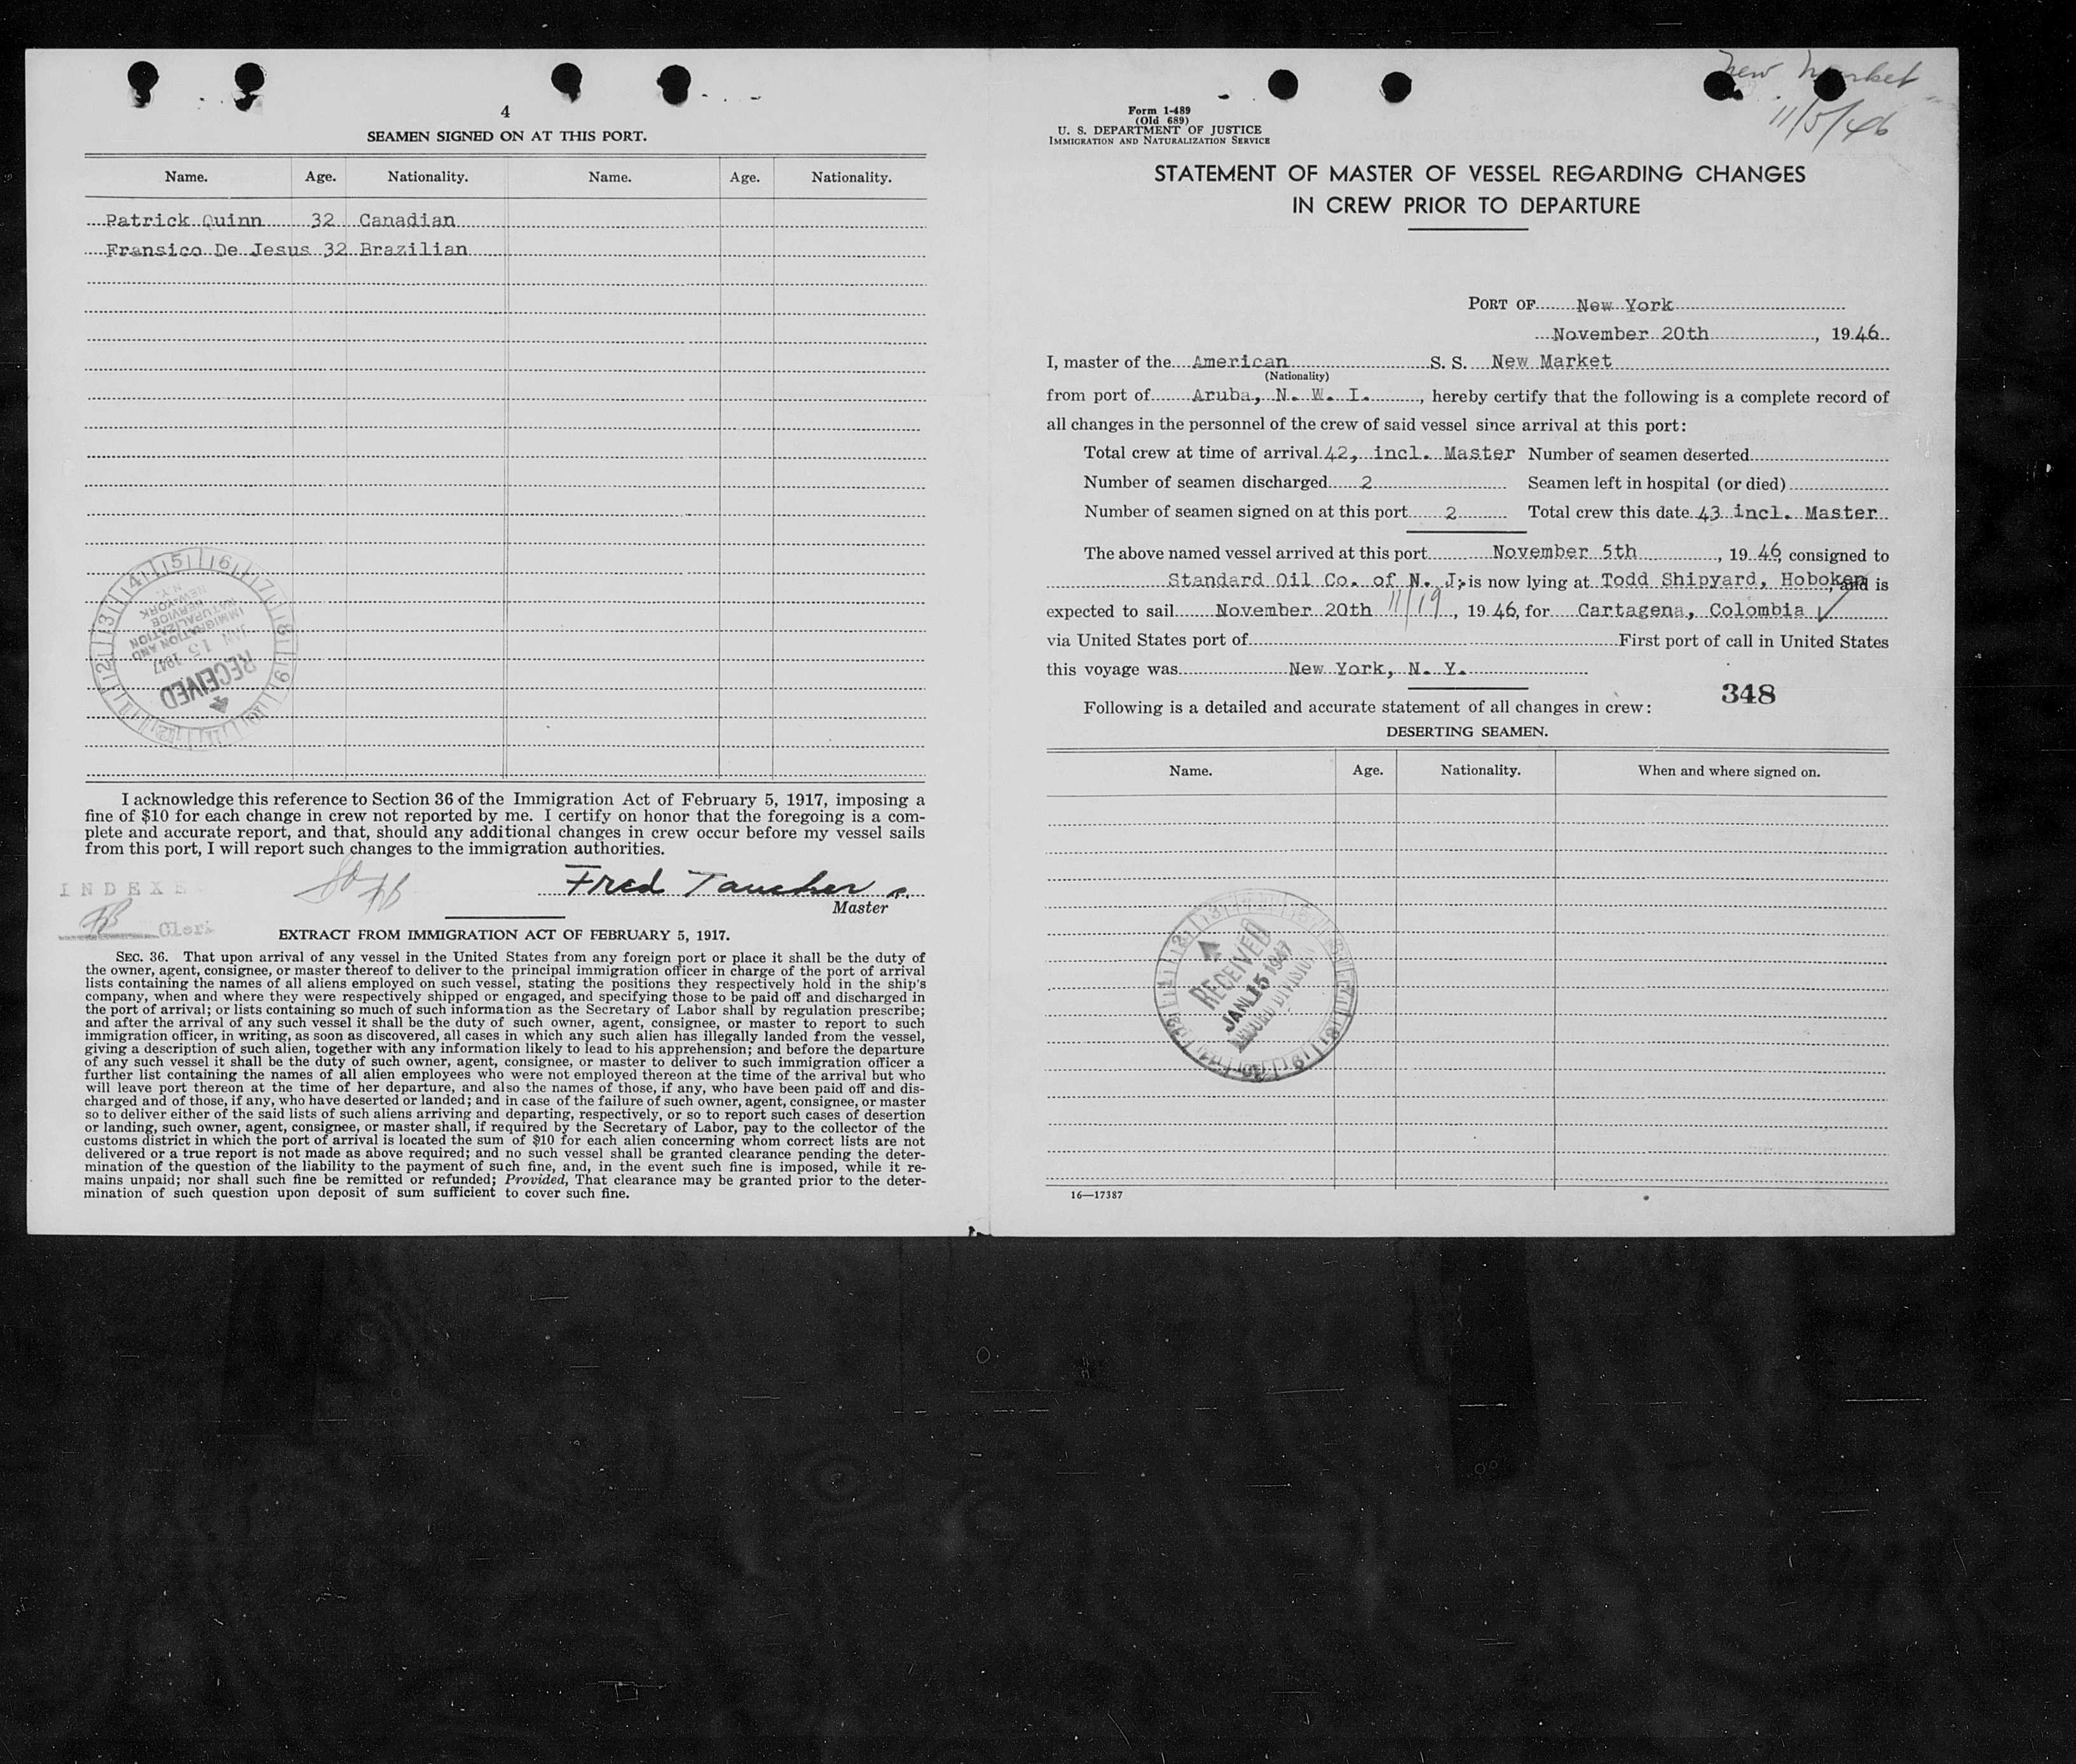 4
SEAMEN SIGNED ON AT THIS PORT.
Name. Age. Nationality. Name. Age. Nationality.
Patrick Quinn 32 Canadian
Fransico De Jesus 32 Brazilian
RECEIVED
JAN 15 1947
IMMIGRATION AND
NATURALIZATION
SERVICE
NEW YORK
N.Y.
I acknowledge this reference to Section 36 of the Immigration Act of February 5, 1917, imposing a
fine of $10 for each change in crew not reported by me. I certify on honor that the foregoing is a com-
plete and accurate report, and that, should any additional changes in crew occur before my vessel sails
from this port, I will report such changes to the immigration authorities.
INDEXE
Fred Taucher
Master
Clerk
EXTRACT FROM IMMIGRATION ACT OF FEBRUARY 5, 1917.
SEC. 36. That upon arrival of any vessel in the United States from any foreign port or place it shall be the duty of
the owner, agent, consignee, or master thereof to deliver to the principal immigration officer in charge of the port of arrival
lists containing the names of all aliens employed on such vessel, stating the positions they respectively hold in the ship's
company, when and where they were respectively shipped or engaged, and specifying those to be paid off and discharged in
the port of arrival; or lists containing so much of such information as the Secretary of Labor shall by regulation prescribe;
and after the arrival of any such vessel it shall be the duty of such owner, agent, consignee, or master to report to such
immigration officer, in writing, as soon as discovered, all cases in which any such alien has illegally landed from the vessel,
giving a description of such alien, together with any information likely to lead to his apprehension; and before the departure
of any such vessel it shall be the duty of such owner, agent, consignee, or master to deliver to such immigration officer a
further list containing the names of all alien employees who were not employed thereon at the time of the arrival but who
will leave port thereon at the time of her departure, and also the names of those, if any, who have been paid off and dis-
charged and of those, if any, who have deserted or landed; and in case of the failure of such owner, agent, consignee, or master
so to deliver either of the said lists of such aliens arriving and departing, respectively, or so to report such cases of desertion
or landing, such owner, agent, consignee, or master shall, if required by the Secretary of Labor, pay to the collector of the
customs district in which the port of arrival is located the sum of $10 for each alien concerning whom correct lists are not
delivered or a true report is not made as above required; and no such vessel shall be granted clearance pending the deter-
mination of the question of the liability to the payment of such fine, and, in the event such fine is imposed, while it re-
mains unpaid; nor shall such fine be remitted or refunded; Provided, That clearance may be granted prior to the deter-
mination of such question upon deposit of sum sufficient to cover such fine.
New Market
11/5/46
Form 1-489
(Old 689)
U. S. DEPARTMENT OF JUSTICE
IMMIGRATION AND NATURALIZATION SERVICE
STATEMENT OF MASTER OF VESSEL REGARDING CHANGES
IN CREW PRIOR TO DEPARTURE
PORT OF New York
November 20th, 1946
I, master of the American S. S. New Market
(Nationality)
from port of Aruba, N. W. I., hereby certify that the following is a complete record of
all changes in the personnel of the crew of said vessel since arrival at this port:
Total crew at time of arrival 42, incl. Master Number of seamen deserted
Number of seamen discharged 2 Seamen left in hospital (or died)
Number of seamen signed on at this port 2 Total crew this date 43 incl. Master
The above named vessel arrived at this port November 5th, 1946, consigned to
Standard Oil Co. of N. J. is now lying at Todd Shipyard, Hoboken, and is
expected to sail November 20th 11/19, 1946, for Cartagena, Colombia ✓
via United States port of First port of call in United States
this voyage was New York, N. Y.
348
Following is a detailed and accurate statement of all changes in crew:
DESERTING SEAMEN.
Name. Age. Nationality. When and where signed on.
RECEIVED
JAN 15 1947
DIVISION
16—17387